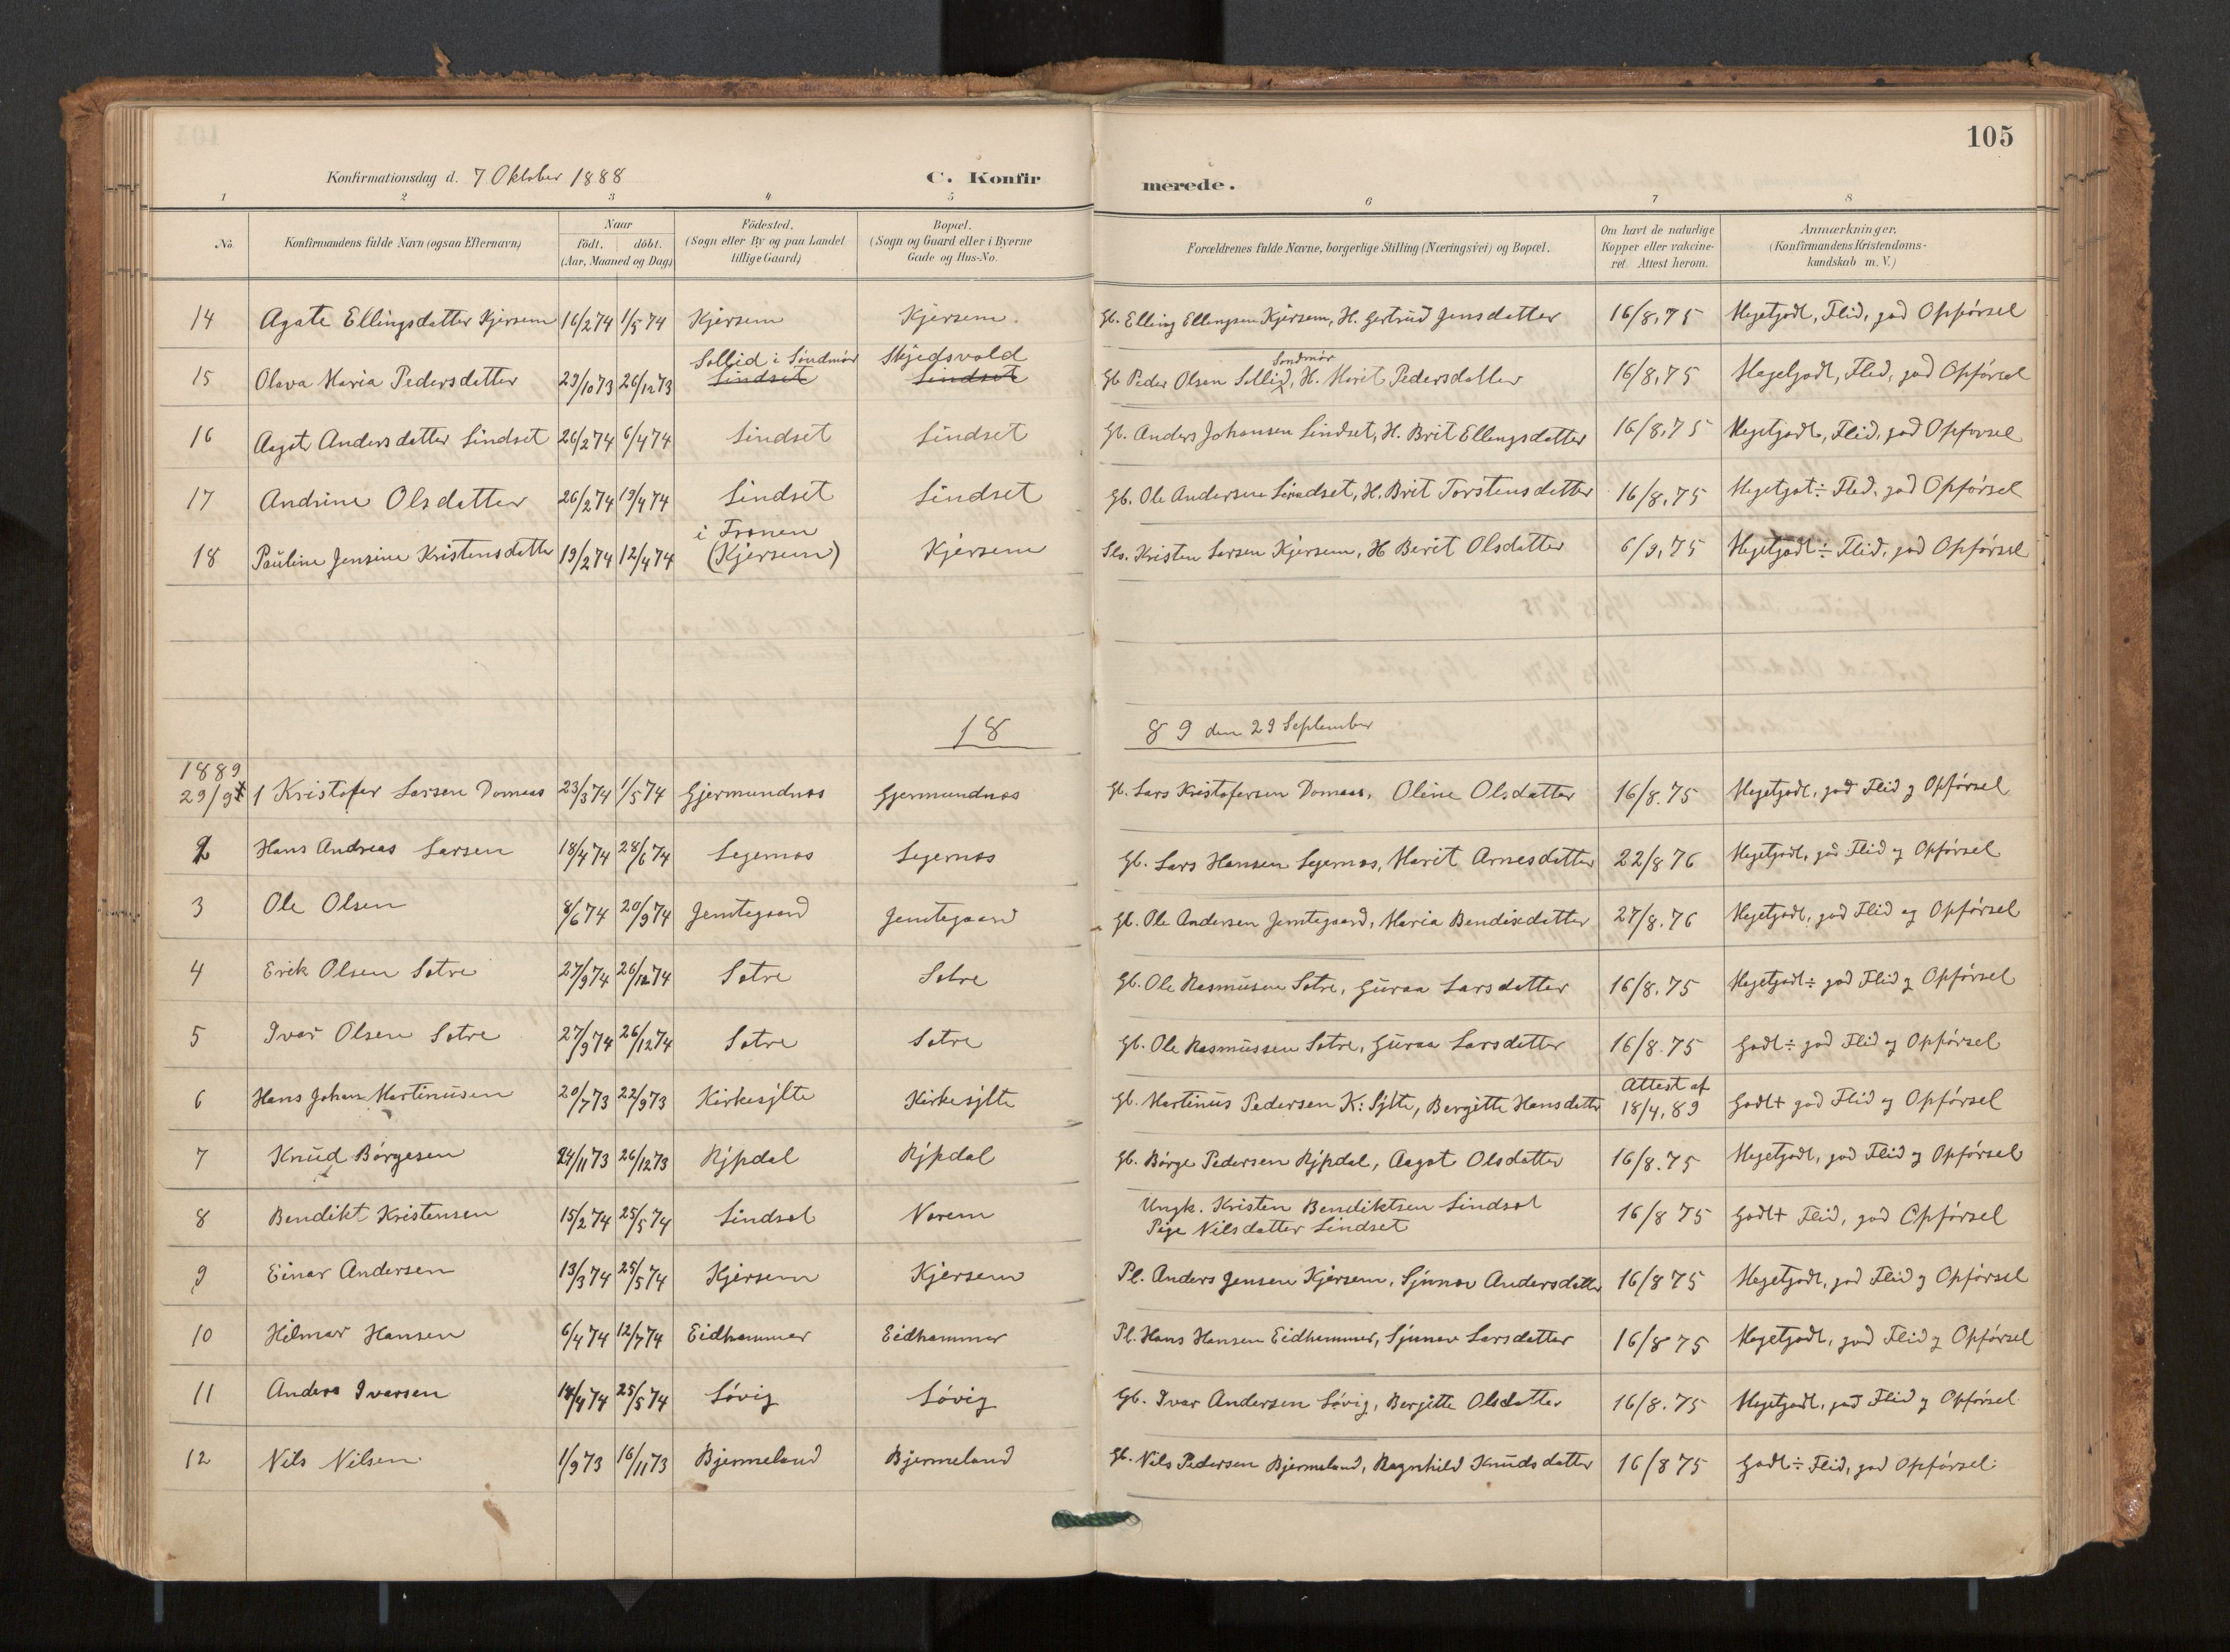 105
Konfirmationsdag d. 7 Oktober 1888
C. Konfirmerede.
1 2 3 4 5 6 7 8
No. Konfirmandens fulde Navn (ogsaa Efternavn) Naar födt. döbt. (Aar, Maaned og Dag) Födested. (Sogn eller By og paa Landet tillige Gaard) Bopæl. (Sogn og Gaard eller i Byerne Gade og Hus-No. Forældrenes fulde Navne, borgerlige Stilling (Næringsvei) og Bopæl. Om havt de naturlige Kopper eller vakcineret. Attest herom. Anmærkninger. (Konfirmandens Kristendomskundskab m. V.)
14 Agate Ellingsdatter Kjersem 16/2 74 1/5 74 Kjersem Kjersem. Gb. Elling Ellingsen Kjersem, H. Gertrud Jensdatter 16/8,75 Megetgodt, Flid, god Opførsel
15 Olava Maria Pedersdatter 29/10 73 26/12 73 Sollid i Søndmør Lindset Skjedsvold Lindset Gb Peder Olsen Sollid, Søndmør H. Marit Pedersdatter 16/8,75 Megetgodt, Flid, god Opførsel
16 Aagot Andersdatter Lindset 26/2 74 6/4 74 Lindset Lindset Gb. Anders Johansen Lindset, H. Brit Ellingsdatter 16/8,75 Megetgodt, Flid, god Opførsel
17 Andrine Olsdatter 26/2 74 19/4 74 Lindset Lindset Gb. Ole Andersen Lindset, H. Brit Torstensdatter 16/8,75 Megetgot÷ Flid, god Opførsel
18 Pauline Jensine Kristensdatter 19/2 74 12/4 74 i Fronen (Kjersem) Kjersem Kristen Larsen Kjersem, H Berit Olsdatter 6/9,75 Megetgodt÷ Flid, god Opførsel
18 89 den 29 September
1889
29/9 1 Kristofer Larsen Domaas 23/3 74 1/5 74 Gjermundnæs Gjermundnæs Gb. Lars Kristofersen Domaas, Oline Olsdatter 16/8.75 Megetgodt, god Flid og Opførsel
2 Hans Andreas Larsen 18/4 74 28/6 74 Legernæs Legernæs Gb. Lars Hansen Legernæs, Marit Arnesdatter 22/8 76 Megetgodt, god Flid og Opførsel
3 Ole Olsen 8/6 74 20/9 74 Jemtegaard Jemtegaard Gb. Ole Andersen Jemtegaard, Maria Bendixdatter 27/8.76 Megetgodt, god Flid og Opførsel
4 Erik Olsen Sætre 27/9 74 26/12 74 Sætre Sætre Gb. Ole Rasmusen Sætre, Guraa Larsdatter 16/8.75 Megetgodt÷ god Flid og Opførsel
5 Ivar Olsen Sætre 27/9 74 26/12 74 Sætre Sætre Gb. Ole Rasmussen Sætre, Guraa Larsdatter 16/8.75 Godt÷ god Flid og Opførsel
6 Hans Johan Martinusen 20/7 73 22/9 73 Kirkesylte Kirkesylte Gb. Martinus Pedersen K: Sylte, Bergitte Hansdatter Attest af 18/4,89 Godt+ god Flid og Opførsel
7 Knud Børgesen 24/11 73 26/12 73 Rypdal Rypdal Gb. Børge Pedersen Rypdal, Aagot Olsdatter 16/8.75 Megetgodt, god Flid og Opførsel
8 Bendikt Kristensen 15/2 74 25/5 74 Lindset Norem Ungk. Kristen Bendiktsen Lindset Pige Nilsdatter Lindset 16/8 75 Godt+ Flid, god Opførsel
9 Einar Andersen 13/3 74 25/5 74 Kjersem Kjersem Pl. Anders Jensen Kjersem, Synnøv Andersdatter 16/8 75 Megetgodt, god Flid og Opførsel
10 Hilmar Hansen 6/4 74 12/7 74 Eidhammer Eidhammer Pl. Hans Hansen Eidhammer, Synnøv Larsdatter 16/8 75 Megetgodt, god Flid og Opførsel
11 Anders Ivarsen 14/4 74 25/5 74 Løvig Løvig Gb. Ivar Andersen Løvig, Bergitte Olsdatter 16/8.75 Megetgodt, god Flid og Opførsel
12 Nils Nilsen 1/9 73 16/11 73 Bjermeland Bjermeland Gb. Nils Pedersen Bjermeland, Ragnhild Knudsdatter 16/8 75 Godt÷ Flid, god Opførsel